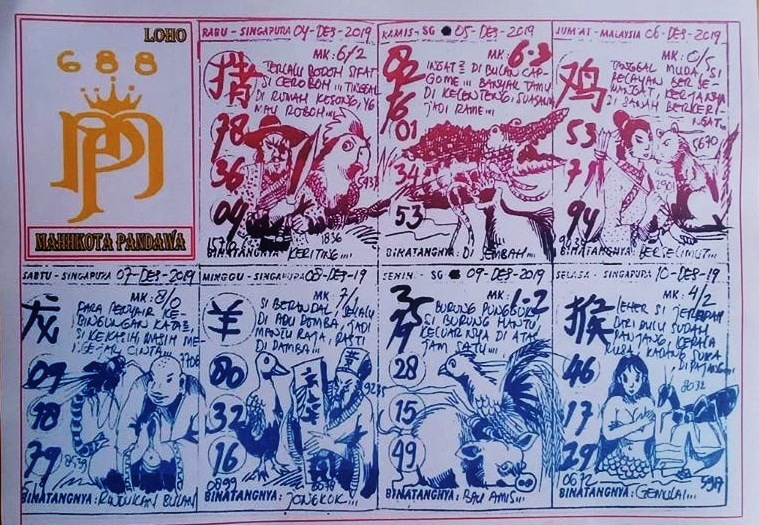 LOHO
688
MAHKOTA PANDAWA
RABU - SINGAPURA 04-DES-2019
MK: 6/2
猪
TERLALU BODOH SIFAT
SI CEROBOH... TINGGAL
DI RUMAH KOSONG, YG
MAU ROBOH...
78
36
04
1836
BINATANGNYA: KERITING...
KAMIS - SG 05-DES-2019
MK: 6-3
INGAT² DI BULAN CAP-
GOME... BANYAK TAMU
DI KELENTENG, SUASANA
JADI RAME...
01
34
53
BINATANGNYA: DI SEMBAH...
JUM'AT - MALAYSIA 06-DES-2019
MK: 0/5
鸡
TANGGAL MUDA, SI
PELAYAN BERSE-
MANGAT, KERJANYA
DI SAWAH BERKER-
NGAT...
5670
53
71
94
BINATANGNYA: BERSELIMUT...
SABTU - SINGAPURA 07-DES-2019
MK: 8/0
龙
PARA PENYAIR KE-
BINGUNGAN KATA²,
SI KEKASIH MASIH ME-
NGEJAL CINTA...
09
98
79
8539
BINATANGNYA: RINDUKAN BULAN
MINGGU - SINGAPURA 08-DES-19
MK: 7/1
羊
SI BERANDAL, SELALU
DI ADU DOMBA, JADI
MANTU RAJA, PASTI
DI DAMBA...
80
32
16
9235
0899
BINATANGNYA: JONGKOK...
SENIN - SG 09-DES-2019
MK: 1-2
BURUNG PUNGGUK
SI BURUNG HANTU,
KELUARNYA DI ATA
JAM SATU...
28
15
49
BINATANGNYA: BAU AMIS...
SELASA - SINGAPURA 10-DES-19
MK: 4/2
猴
LEHER SI JERAPAH
DARI DULU SUDAH
PANJANG, KEPALA
KUDA KADANG SUKA
DI PAJANG...
8032
46
17
29
0672
BINATANGNYA: GEMULAI...